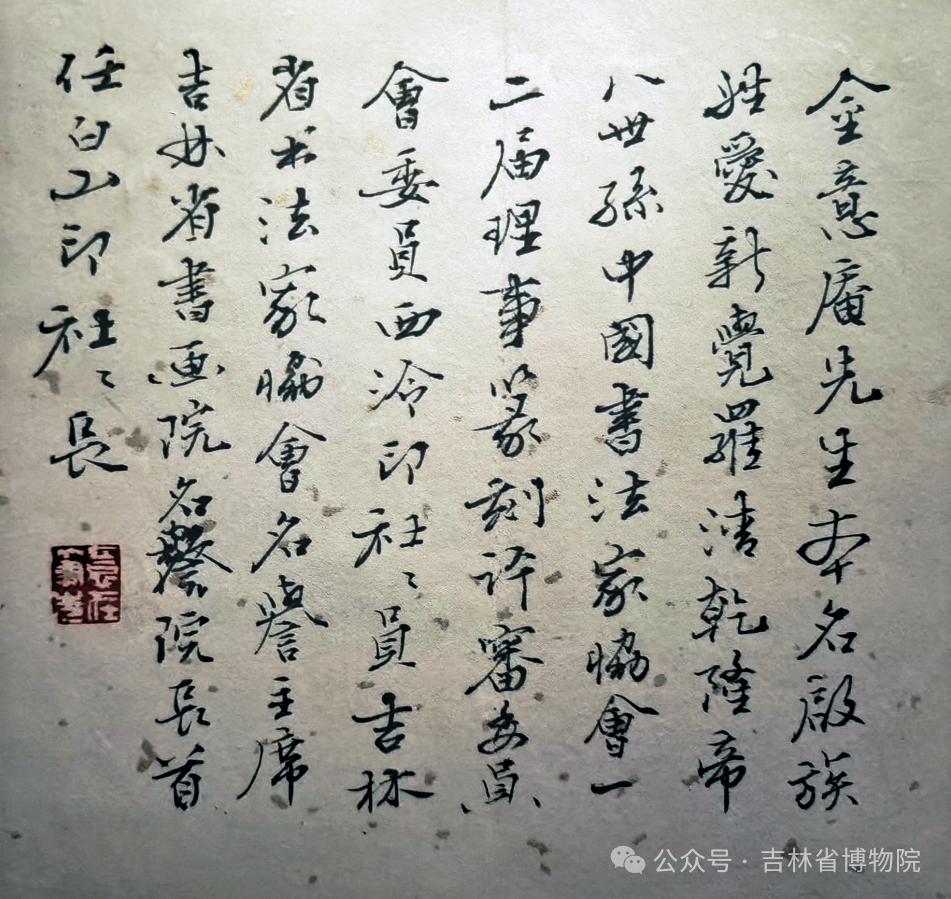 金意庵先生本名啟族
姓愛新覺羅清乾隆帝
八世孫中國書法家協會一
二届理事篆刻評審委員
會委員西泠印社〻員吉林
省书法家協會名譽主席
吉林省書画院名譽院長首
任白山印社〻長
公众号 · 吉林省博物院